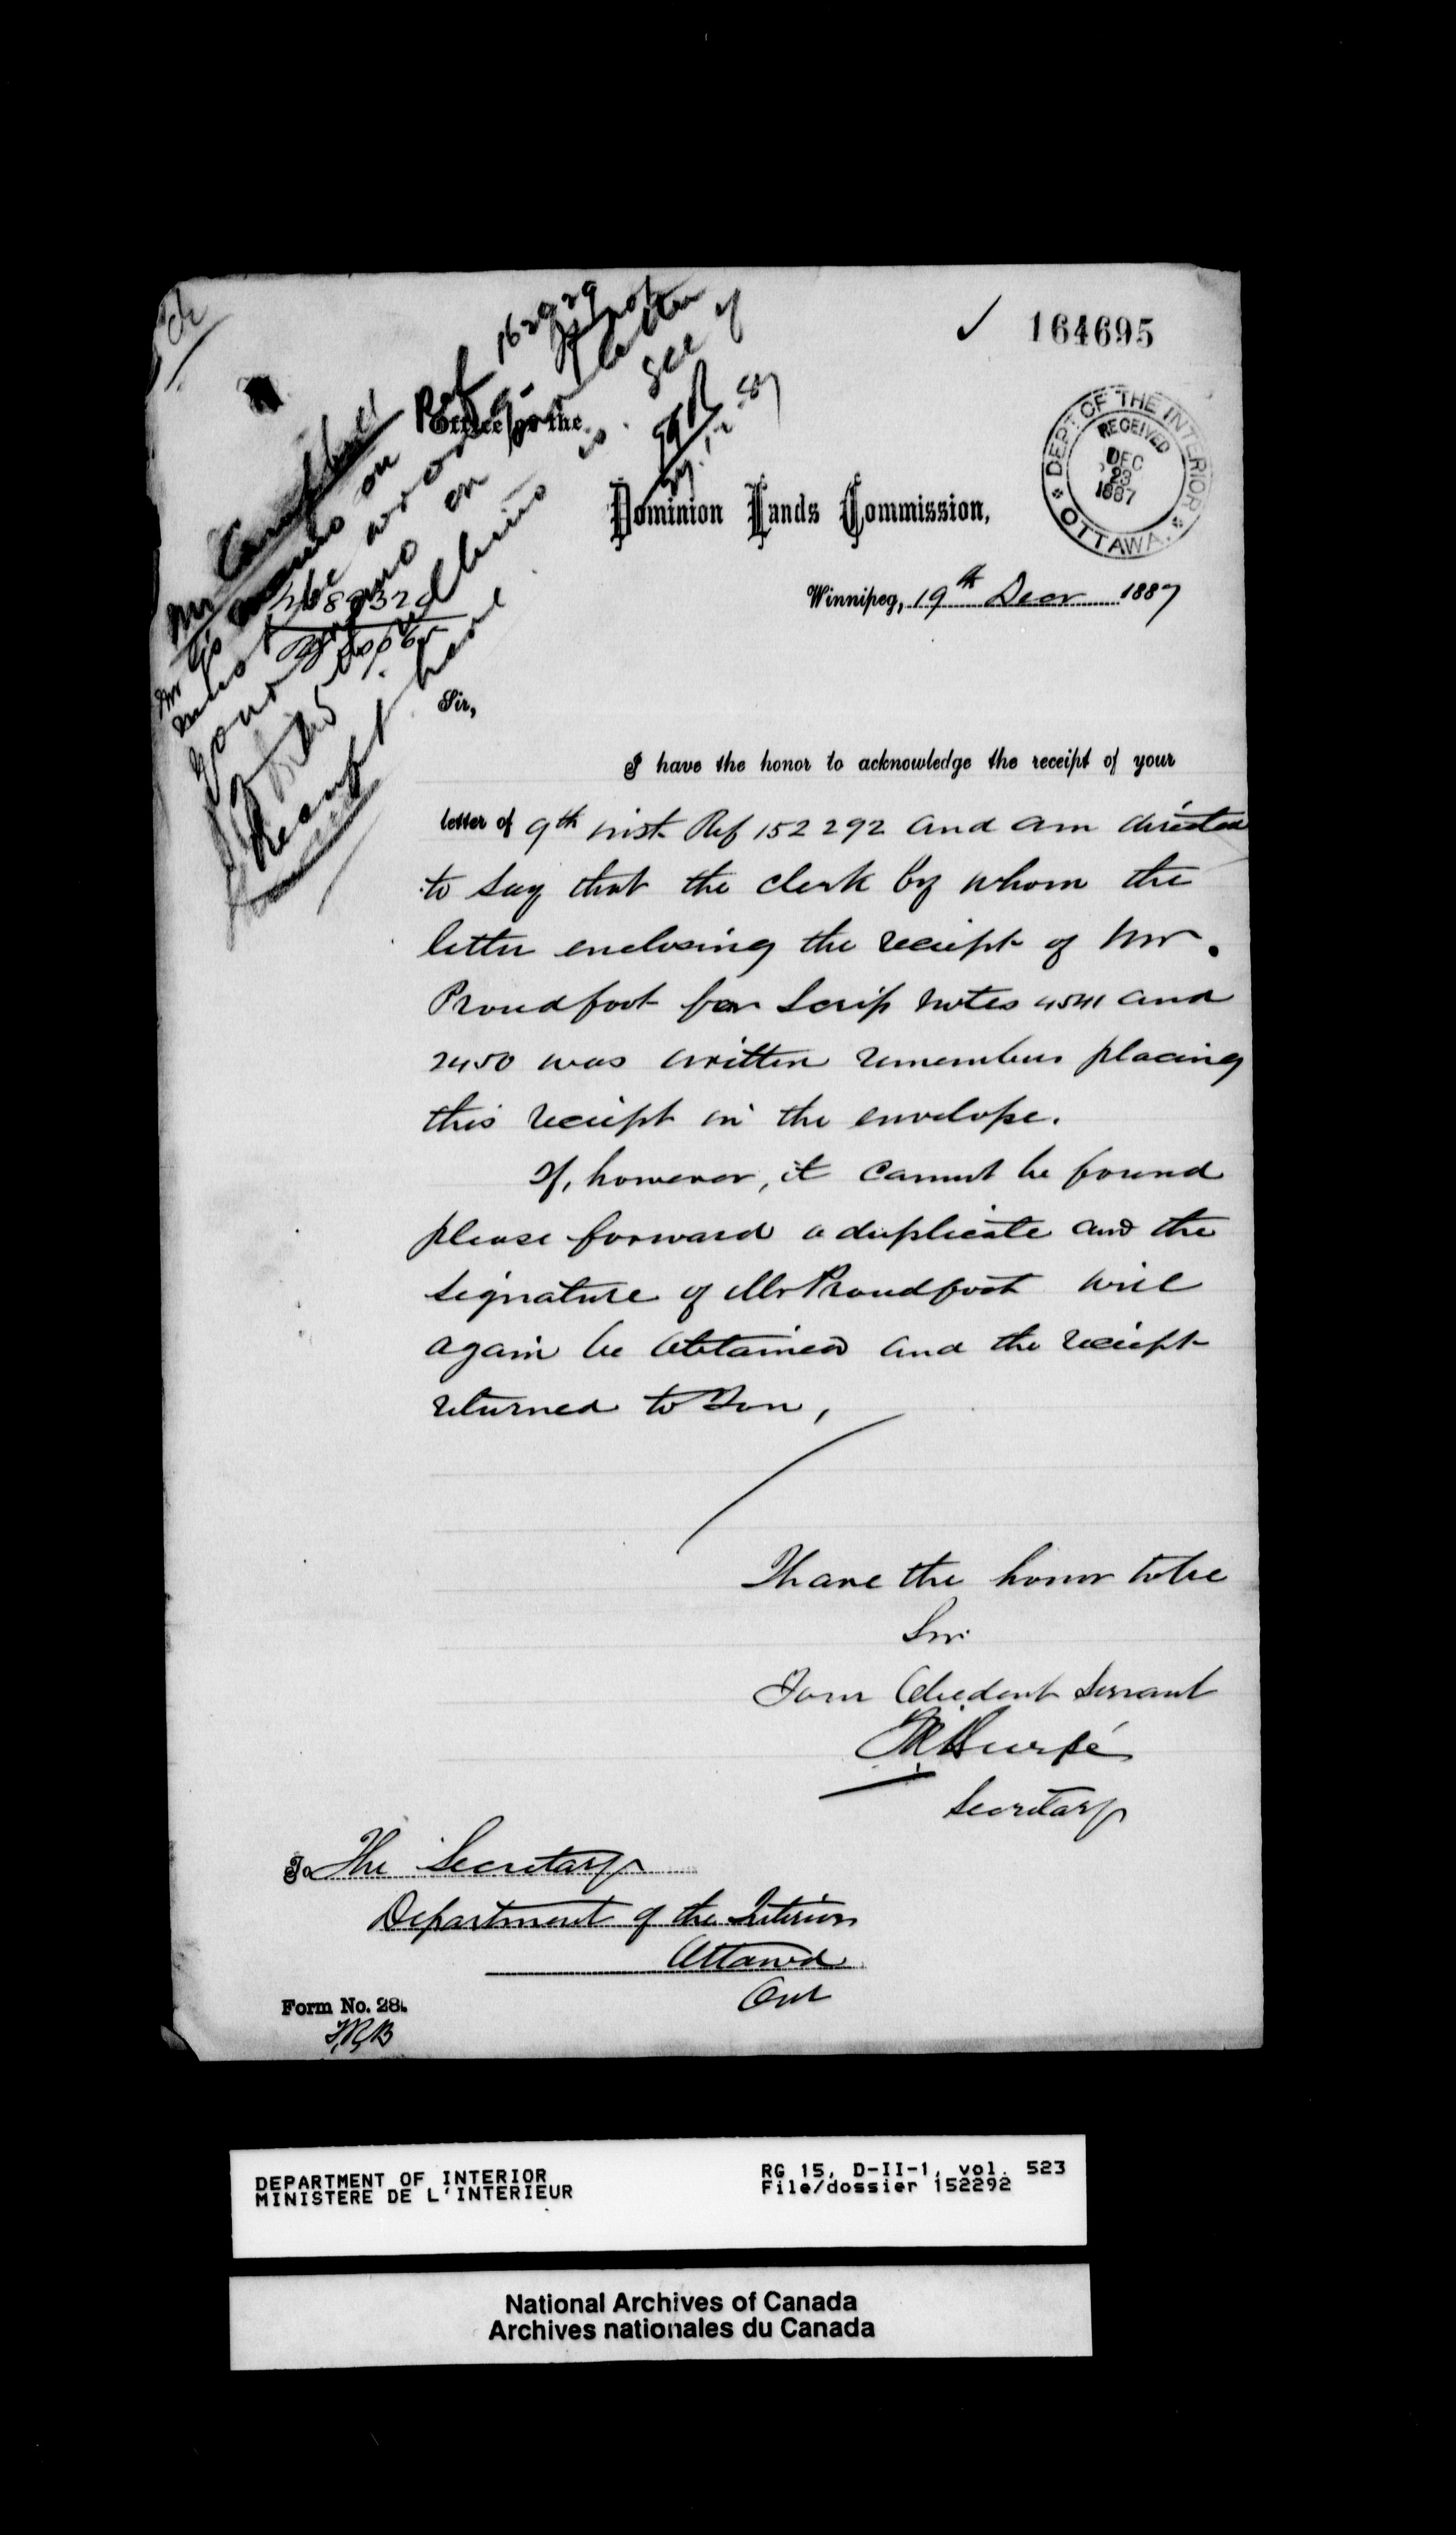 164695
Ref 162929
Mr Campbell
Office of the
Dominion Lands Commission,
DEPT OF THE INTERIOR
RECEIVED
DEC
23
1887
OTTAWA.
Winnipeg, 19th Decr 1887
Sir,
I have the honor to acknowledge the receipt of your
letter of 9th inst. Ref 152292 and am directed
to say that the clerk by whom the
letter enclosing the receipt of Mr.
Proudfoot for Scrip notes 4541 and
2450 was written remembers placing
this receipt in the envelope.
If, however, it cannot be found
please forward a duplicate and the
signature of Mr Proudfoot will
again be obtained and the receipt
returned to you,
I have the honor to be
Sir
Your Obedient Servant
Secretary
To The Secretary
Department of the Interior
Ottawa
Ont
Form No. 28.
DEPARTMENT OF INTERIOR
MINISTERE DE L'INTERIEUR
RG 15, D-II-1, vol. 523
File/dossier 152292
National Archives of Canada
Archives nationales du Canada